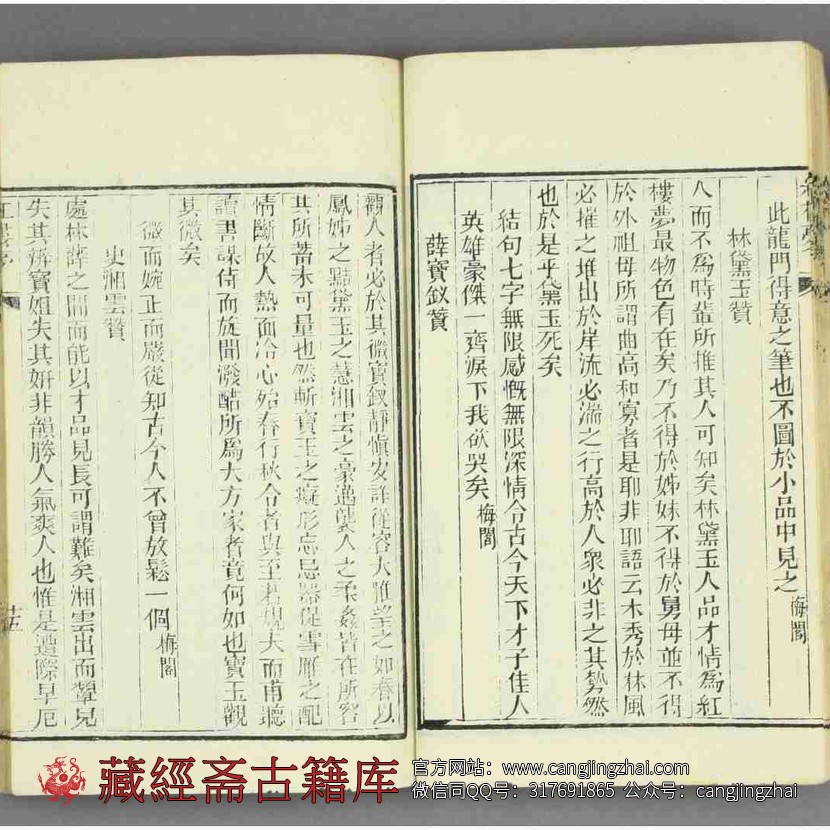 此龍門得意之筆也不圖於小品中見之梅閣
林黛玉贊
人而不爲時輩所推其人可知矣林黛玉人品才情爲紅
樓夢最物色有在矣乃不得於姊妹不得於舅母並不得
於外祖母所謂曲高和寡者是耶非耶語云木秀於林風
必摧之堆出於岸流必湍之行高於人衆必非之其勢然
也於是乎黛玉死矣
結句七字無限感慨無限深情令古今天下才子佳人
英雄豪傑一齊淚下我欲哭矣梅閣
薛寶釵贊
觀人者必於其微寶釵靜慎安詳從容大雅望之如春以
鳳姊之黠黛玉之慧湘雲之豪邁襲人之柔姦皆在所容
其所蓄未可量也然斬寶玉之癡形忘忌器促雪雁之配
情斷故人熱面冷心殆春行秋令者與至若規夫而甫聽
讀書謀侍而旋聞潑醋所爲大方家者竟何如也寶玉觀
其微矣
微而婉正而嚴從知古今人不曾放鬆一個梅閣
史湘雲贊
處林薛之間而能以才品見長可謂難矣湘雲出而顰兒
失其辨寶姐失其妍非韻勝人氣爽人也惟是遭際早厄
十五
藏經斋古籍库
官方网站：www.cangjingzhai.com
微信同QQ号：317691865 公众号：cangjingzhai